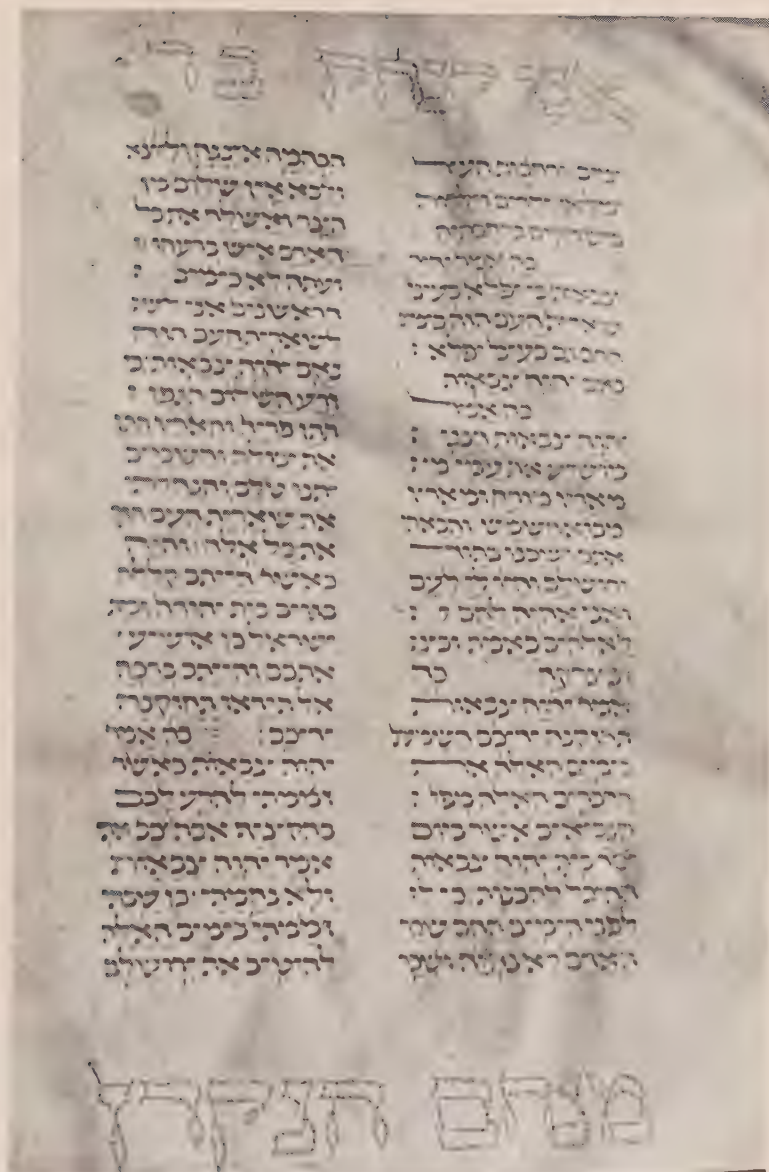 יצחק בר
ורחבות העיר
ימלאו ילדים וילדות
משחקים ברחבתיה
כה אמר יהוה
צבאות כי יפלא בעיני
שארית העם הזה בימים
ההם גם בעיני יפלא
נאם יהוה צבאות
כה אמר
יהוה צבאות הנני
מושיע את עמי
מארץ מזרח ומארץ
מבוא השמש והבאתי
אתם ושכנו בתוך
ירושלם והיו לי לעם
ואני אהיה להם
לאלהים באמת
ובצדקה כה
אמר יהוה צבאות
תחזקנה ידיכם השמעים
בימים האלה את
הדברים האלה מפי
הנביאים אשר ביום
יסד בית יהוה צבאות
ההיכל להבנות כי
לפני הימים ההם שכר
האדם לא נהיה ושכר
הבהמה איננה וליוצא
ולבא אין שלום מן
הצר ואשלח את כל
האדם איש ברעהו
ועתה לא כימים
הראשנים אני
לשארית העם הזה
נאם יהוה צבאות כי
זרע השלום הגפן
תתן פריה והארץ תתן
את יבולה והשמים
יתנו טלם והנחלתי
את שארית העם הזה
את כל אלה והיה
כאשר הייתם קללה
בגוים בית יהודה ובית
ישראל כן אושיע
אתכם והייתם ברכה
אל תיראו תחזקנה
ידיכם כה אמר
יהוה צבאות כאשר
זממתי להרע לכם
אמר יהוה צבאות
ולא נחמתי כן
זממתי בימים האלה
להיטיב את ירושלם
מנחם הנקדן